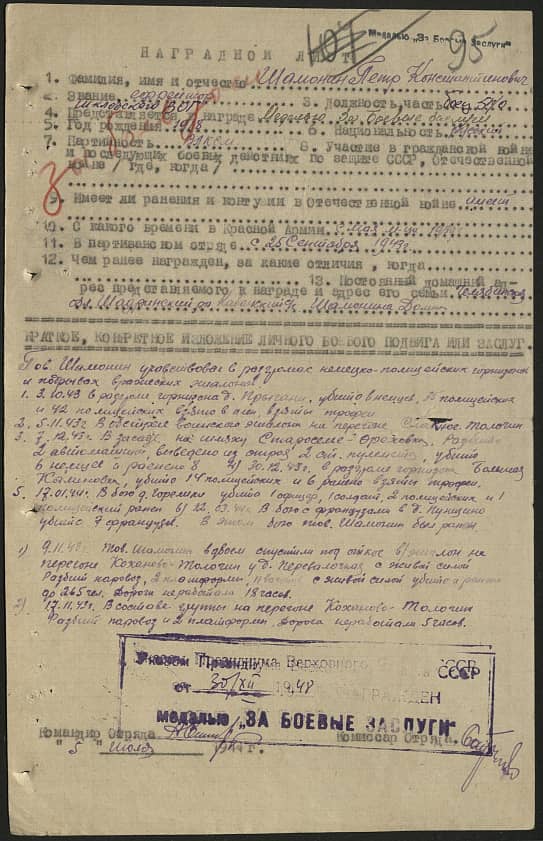 107
Медалью „За Боевые Заслуги"
95
НАГРАДНОЙ ЛИСТ
1. Фамилия, имя и отчество Шамонин Петр Константинович
2. Звание ефрейтор 3. Должность, часть Боец
Шкловского ВОГ
4. Представляется к награде Медалью За боевые заслуги
5. Год рождения 6. Национальность русский
7. Партийность ВЛКСМ 8. Участие в гражданской войне
и последующих боевых действиях по защите СССР, Отечественной
войне /где, когда/
9. Имеет ли ранения и контузии в Отечественной войне имеет
10. С какого времени в Красной Армии с
11. В партизанском отряде с 25 Сентября 1943 г.
12. Чем ранее награжден, за какие отличия, когда
13. Постоянный домашний ад-
рес представляемого к награде и адрес его семьи
Шамонина
КРАТКОЕ, КОНКРЕТНОЕ ИЗЛОЖЕНИЕ ЛИЧНОГО БОЕВОГО ПОДВИГА ИЛИ ЗАСЛУГ.
Тов. Шамонин участвовал в разгромах немецко-полицейских гарнизонов
и подрывах вражеских эшалонов
1. 3.10.43 в разгроме гарнизона д. убито немцев, полицейских
и 42 полицейских взято в плен, взяты трофеи
2. 5.11.43г. В обстреле воинского эшалона на перегоне Толочин
3. 7.12.43г. В засаде на шляху Староселье-Ореховка, Разбито
2 автомашины, выведено из строя 2 ст. пулемета, убито
6 немцев и ранено 8 4) 30.12.43г. в разгроме гарнизона
убито 14 полицейских и 6 ранено взяты трофеи.
5. 17.01.44г. В бою д. Горелики убито 1 офицер, 1 солдат, 2 полицейских и 1
полицейский ранен 6) 22.03.44г. В бою с французами в д. Пунищино
убито 7 французов. В этом бою тов. Шамонин был ранен.
1) 9.11.43г. Тов. Шамонин вдвоем спустили под откос в/эшалон на
перегоне Коханово-Толочин у д. Переволочня с живой силой
Разбит паровоз, 2 платформы, с живой силой убито и ранено
до 265 чел. Дорога не работала 18 часов.
2) 17.11.43г. В составе группы на перегоне Коханово-Толочин
Разбит паровоз и 2 платформы, Дорога не работала 5 часов.
Указом Президиума Верховного СССР
от 30/XII 1948 НАГРАЖДЕН
медалью „ЗА БОЕВЫЕ ЗАСЛУГИ"
Командир Отряда Комиссар Отряда
"5" Июля 1944 г.